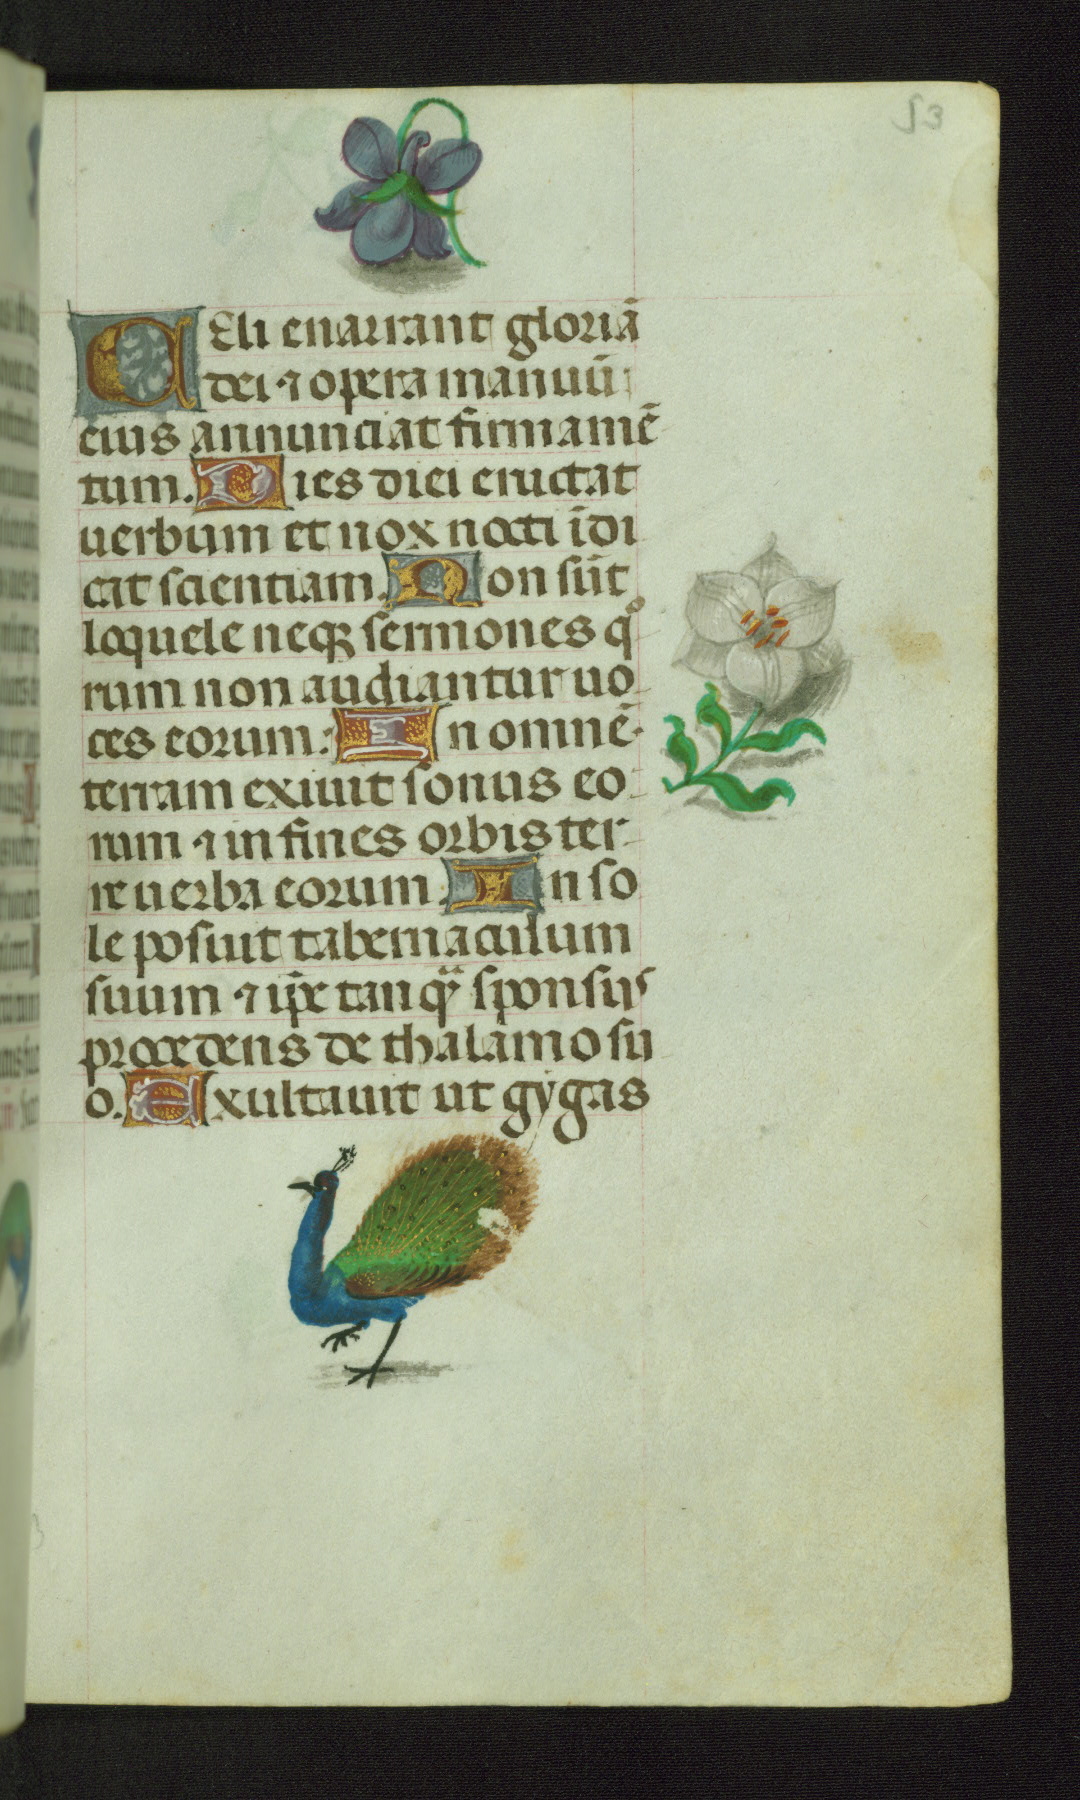 53
CEli enarrant gloriā
dei ⁊ opera manuū
eius annunciat firmamē
tum. Dies diei eructat
uerbum et nox nocti īdi
cat scientiam. Non sūt
loquele neqꝫ sermones qͦ
rum non audiantur uo
ces eorum. In omnē
terram exiuit sonus eo
rum ⁊ in fines orbis ter
re uerba eorum. In so
le posuit tabernaculum
suum ⁊ ip̄e tanqᷓ sponsus
procedens de thalamo su
o. Exultauit ut gygas